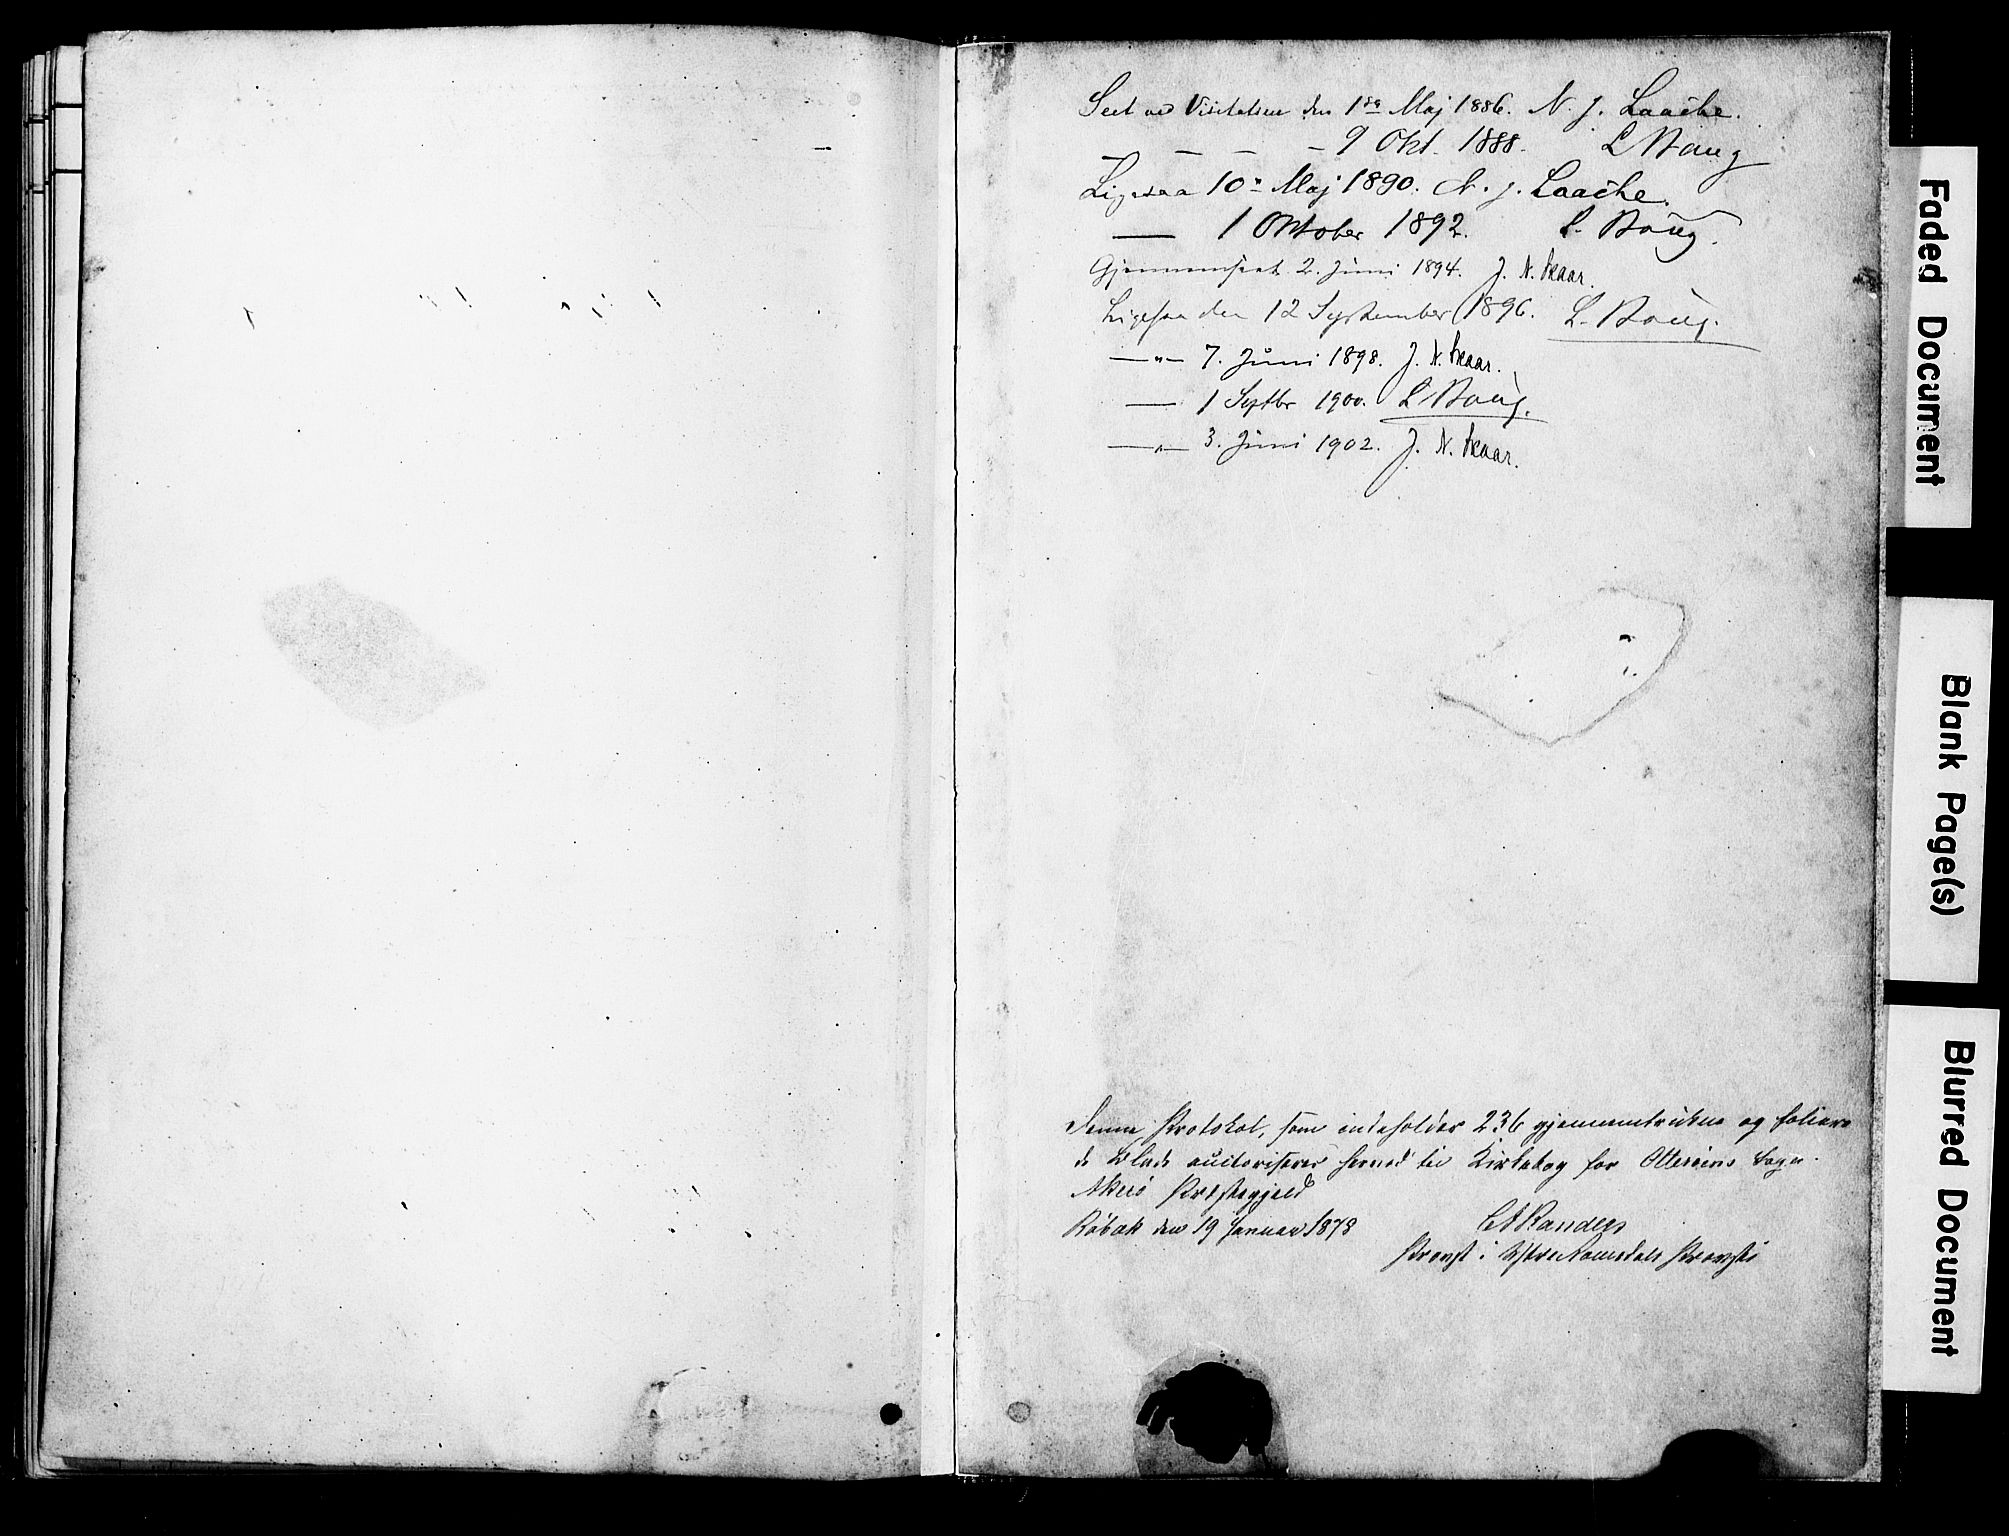 Seet ved Visitatsen den 18de Maj 1886. N. J. Laache.
— — — — 9 Okt. 1888. L Haug
Ligesaa 10de Maj 1890. N. J. Laache.
— 1 Oktober 1892. L. Haug.
Gjennemseet 2. Juni 1894. J. N. Skaar.
Ligesaa den 12 September 1896. L. Haug.
—"— 7. Juni 1898. J. N. Skaar.
— 1 Septbr 1900. L Haug.
—"— 3. Juni 1902. J. N. Skaar.
Denne Protokol, som indeholder 236 gjennemtrukne og foliere
de Blade autoriseres herved til Kirkebog for Otteröens Sogn
Akerö Præstegjeld
Röbak den 19 Januar 1878
Randers
Provst i Ydre Romsdals Provsti
Faded Document
Blank Page(s)
Blurred Document